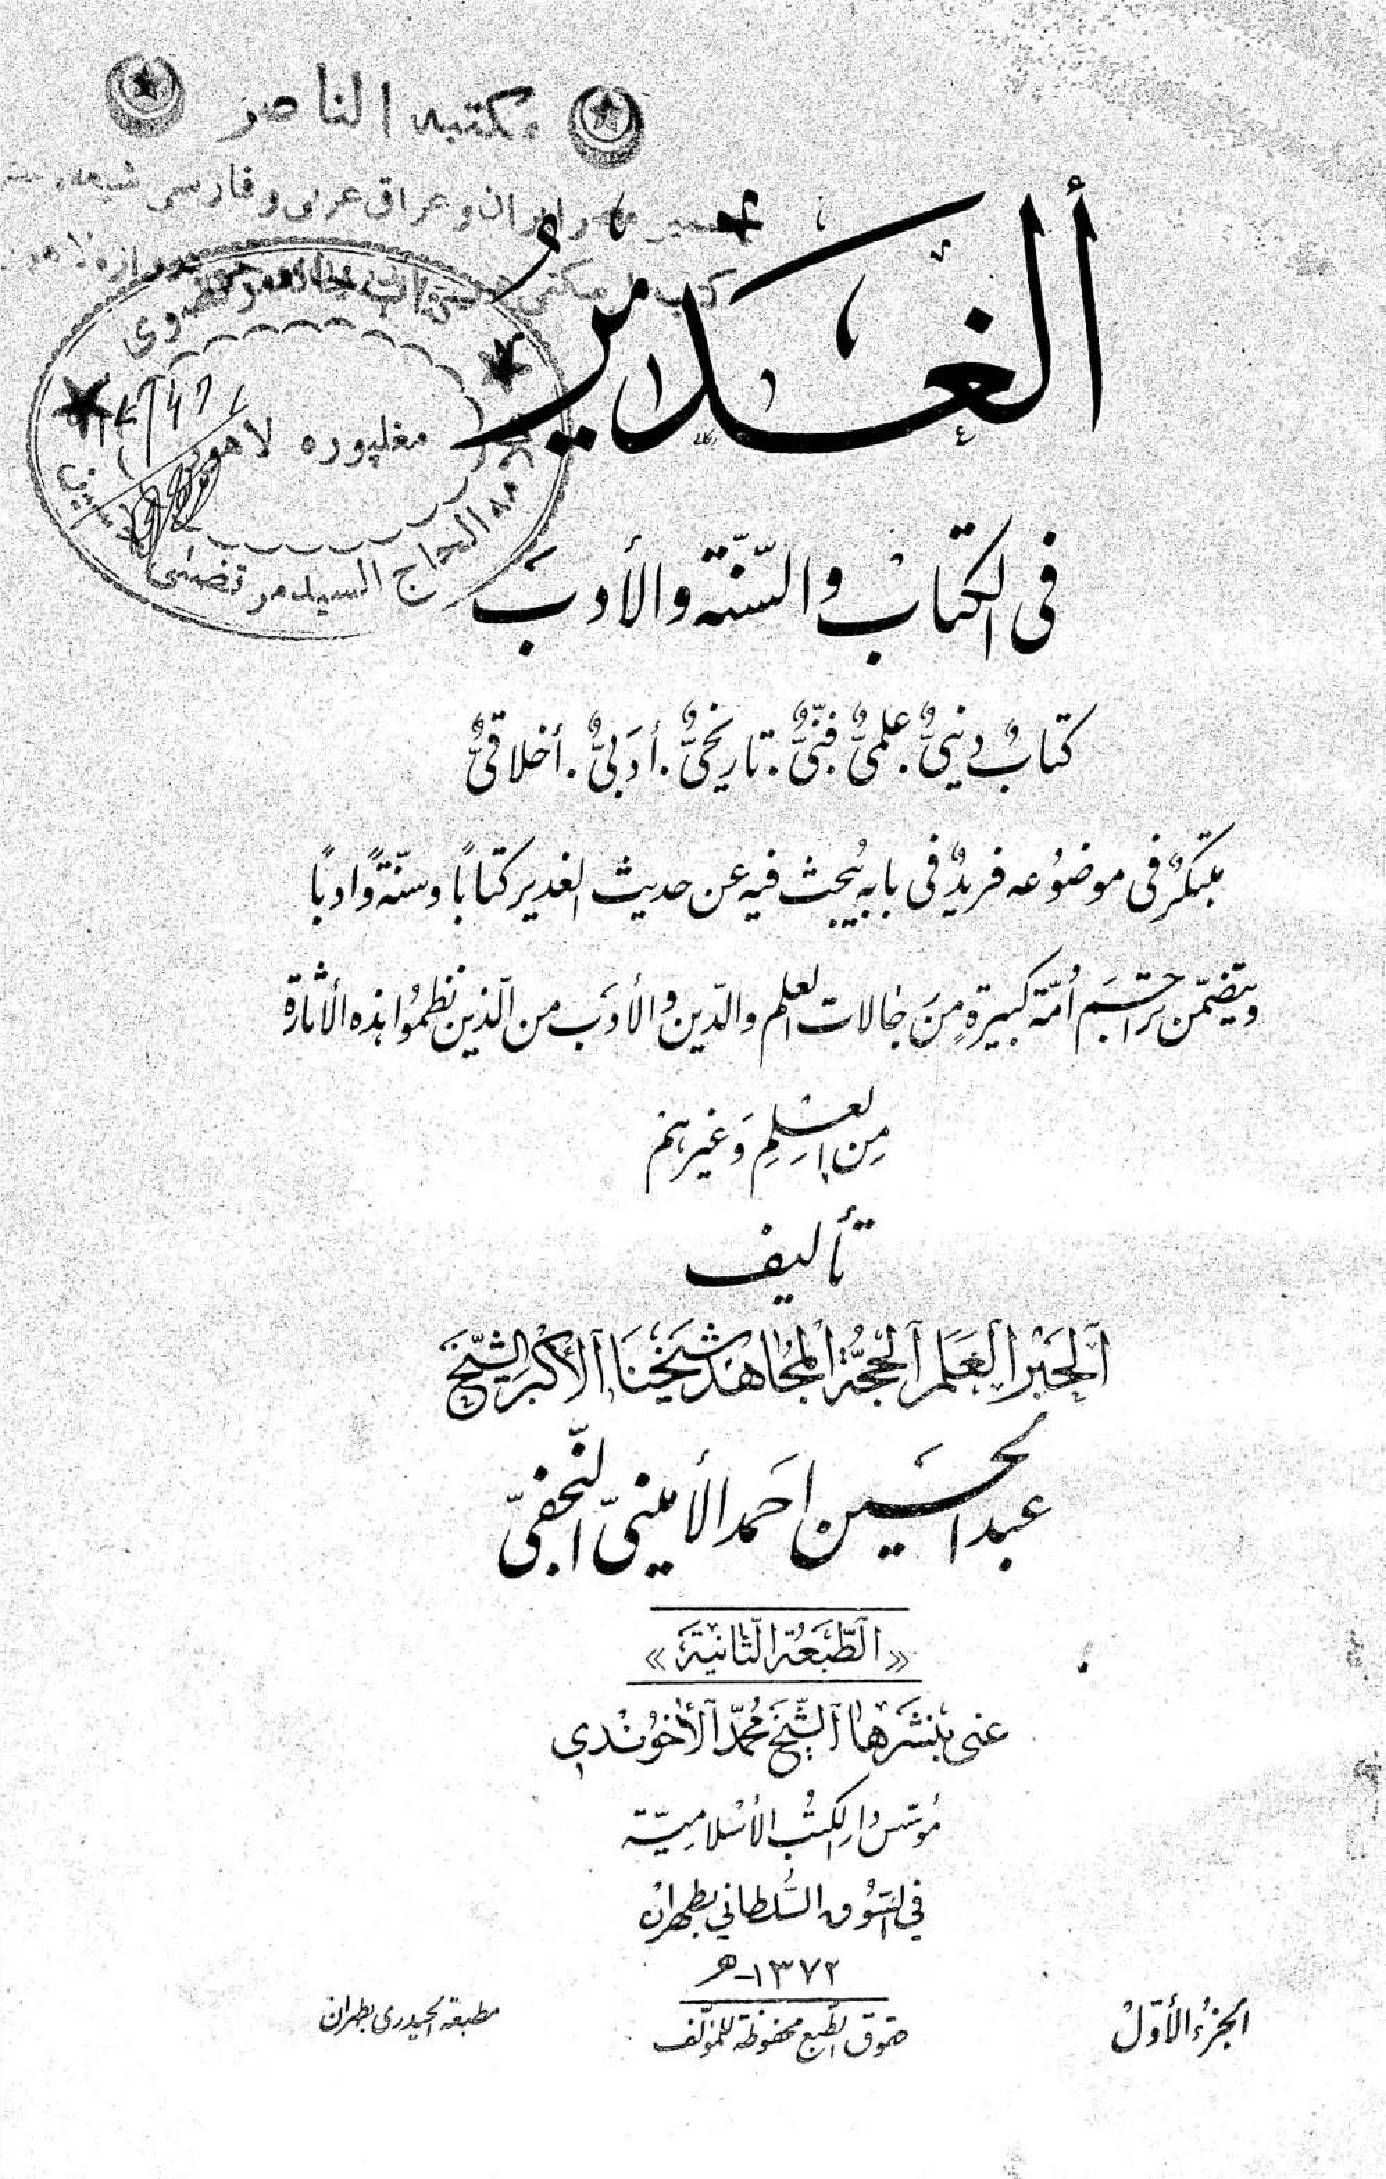 مكتبه الناصر
ایران و عراق عربی و فارسی شیعه
ألغدير
مغلپوره لاهور
الحاج السید مرتضی
في الكتاب والسّنّة والأدب
كتابٌ دينيٌّ. علميٌّ. فنّيٌّ. تاريخيٌّ. أدبيٌّ. أخلاقيٌّ
مبتكرٌ في موضوعه فريدٌ في بابه يُبحث فيه عن حديث الغدير كتاباً وسنّةً وادباً
ويتضمّن تراجم أُمّة كبيرةٍ من رجالات العلم والدّين والأدب من الّذين نظموا هذه الأثارة
من العلم وغيرهم
تأليف
ألحبر العلم الحجّة المجاهد شيخنا الأكبر الشّيخ
عبد الحسين احمد الأمينيّ النّجفيّ
«الطّبعة الثّانية»
عنى بنشرها الشّيخ محمّد الأخوندي
مؤسّس دار الكتب الأسلاميّة
في السّوق السّلطاني بطهران
١٣٧٢-هـ
حقوق الطّبع محفوظة للمؤلّف
الجزء الأوّل
مطبعة الحيدري بطهران